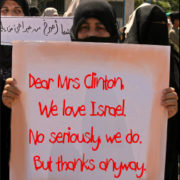 Dear Mrs Clinton,
We love Israel.
No seriously, we do.
But thanks anyway.